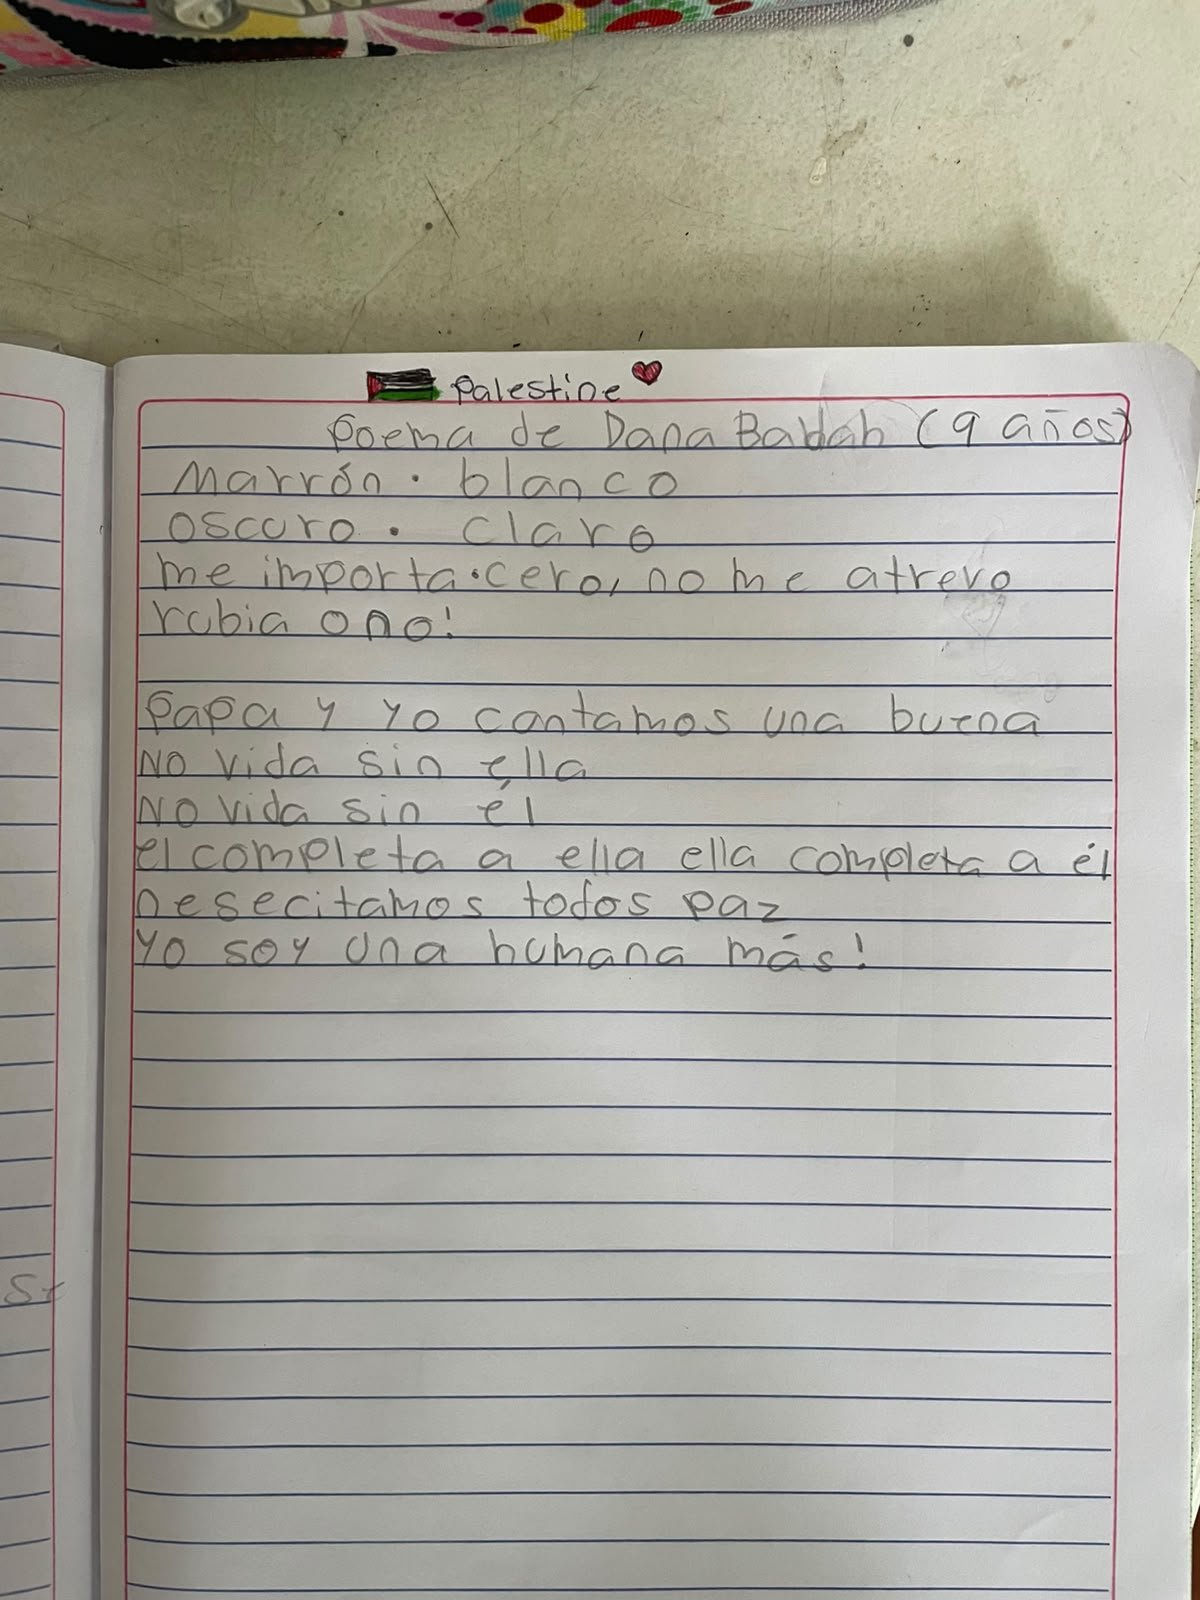 Palestine
Poema de Dana Babdah (9 años)
Marrón. blanco
oscuro. claro
me importa.cero, no me atrevo
rubia o no!
Papa y yo cantamos una buena
No vida sin ella
No vida sin él
el completa a ella ella completa a él
nesecitamos todos paz
Yo soy una humana más!
St